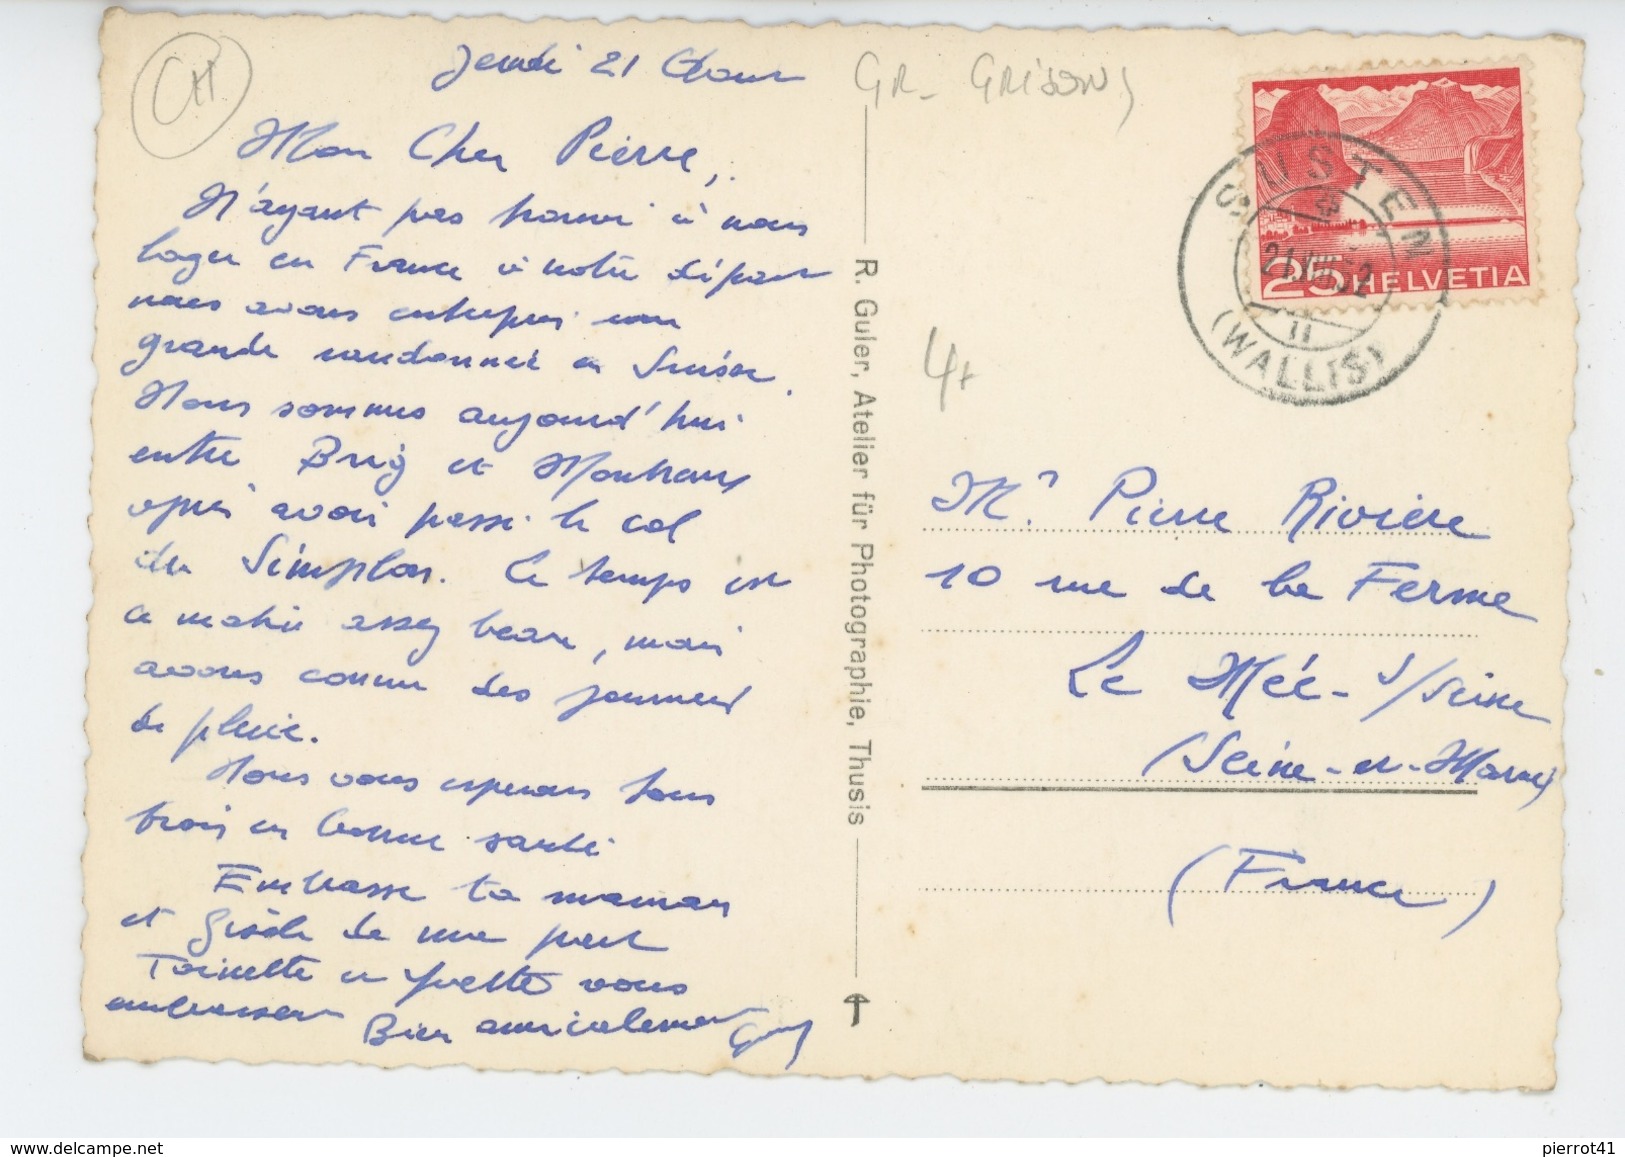 CH
Jeudi 21 Aout
Mon Cher Pierre,
N'ayant pas trouvé à nous
loger en France à notre départ
nous avons entrepris une
grande randonnée en Suisse.
Nous sommes aujourd'hui
entre Brig et Montreux
après avoir passé le col
du Simplon. Le temps est
ce matin assez beau, mais
avons connu des journées
de pluie.
Nous vous espérons tous
trois en bonne santé
Embrasse ta maman
et Gisèle de ma part
Toinette et Yvette vous
embrassent Bien amicalement
R. Guler, Atelier für Photographie, Thusis
GR - GRISONS
SUSTEN
21.VIII.52
11
(WALLIS)
25 HELVETIA
4+
Mr. Pierre Rivière
10 rue de la Ferme
Le Mée-s/Seine
(Seine-et-Marne)
(France)
pierrot41
www.delcampe.net